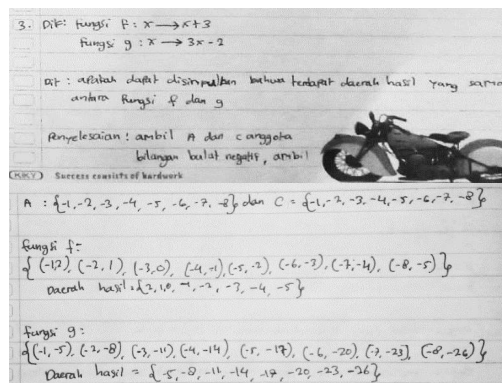 3. Dik: fungsi f : x → x+3
Fungsi g : x → 3x - 2
Dit : apakah dapat disimpulkan bahwa terdapat daerah hasil yang sama
antara fungsi f dan g
Penyelesaian : ambil A dan C anggota
bilangan bulat negatif, ambil
KIKY Success consists of hardwork
A : {-1, -2, -3, -4, -5, -6, -7, -8} dan C = {-1, -2, -3, -4, -5, -6, -7, -8}
fungsi f:
{(-1,2), (-2, 1), (-3,0), (-4,-1), (-5, -2), (-6, -3), (-7,-4), (-8, -5)}
Daerah hasil : {2, 1, 0, -1, -2, -3, -4, -5}
fungsi g :
{(-1, -5), (-2, -8), (-3, -11), (-4, -14), (-5, -17), (-6, -20), (-7, -23), (-8, -26)}
Daerah hasil = {-5, -8, -11, -14, -17, -20, -23, -26}